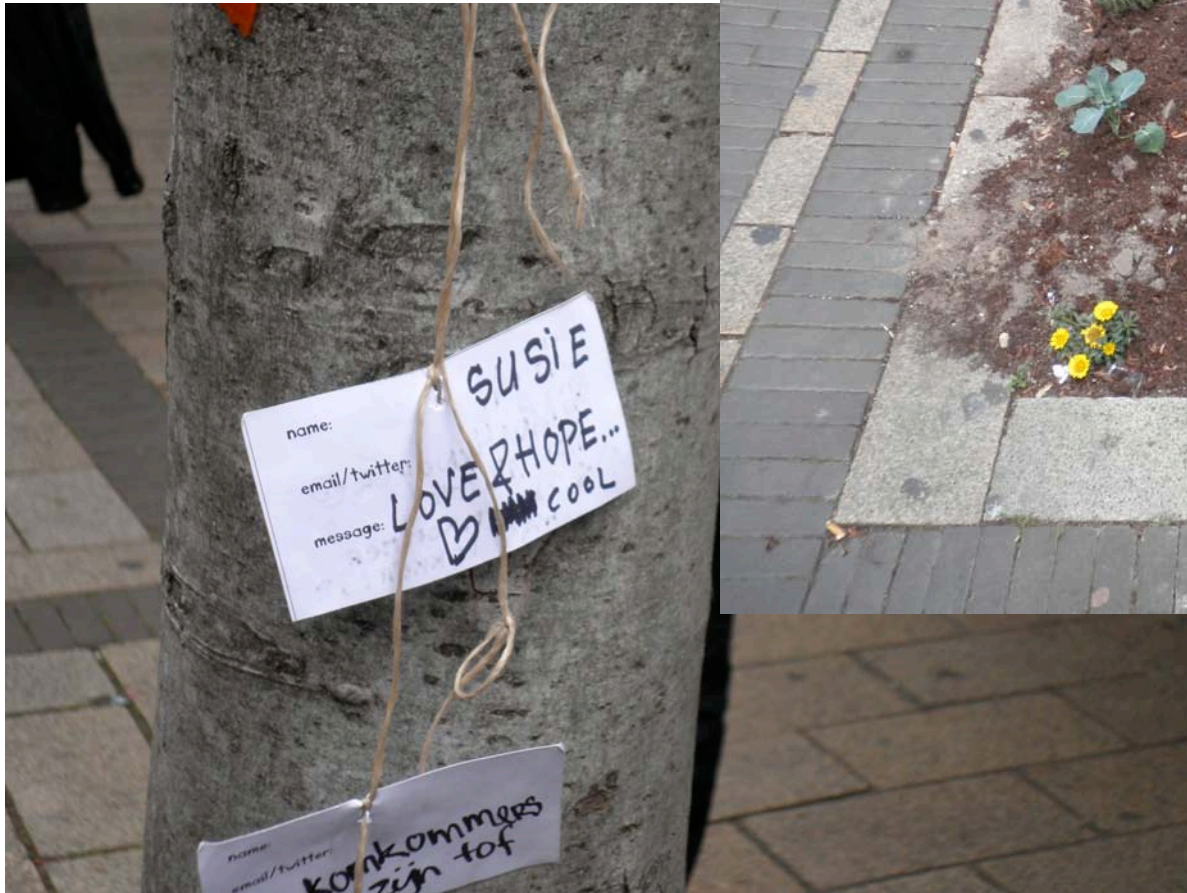 name: SUSIE
email/twitter:
message: LOVE & HOPE...
♡ COOL
name:
email/twitter: komkommers
zijn tof